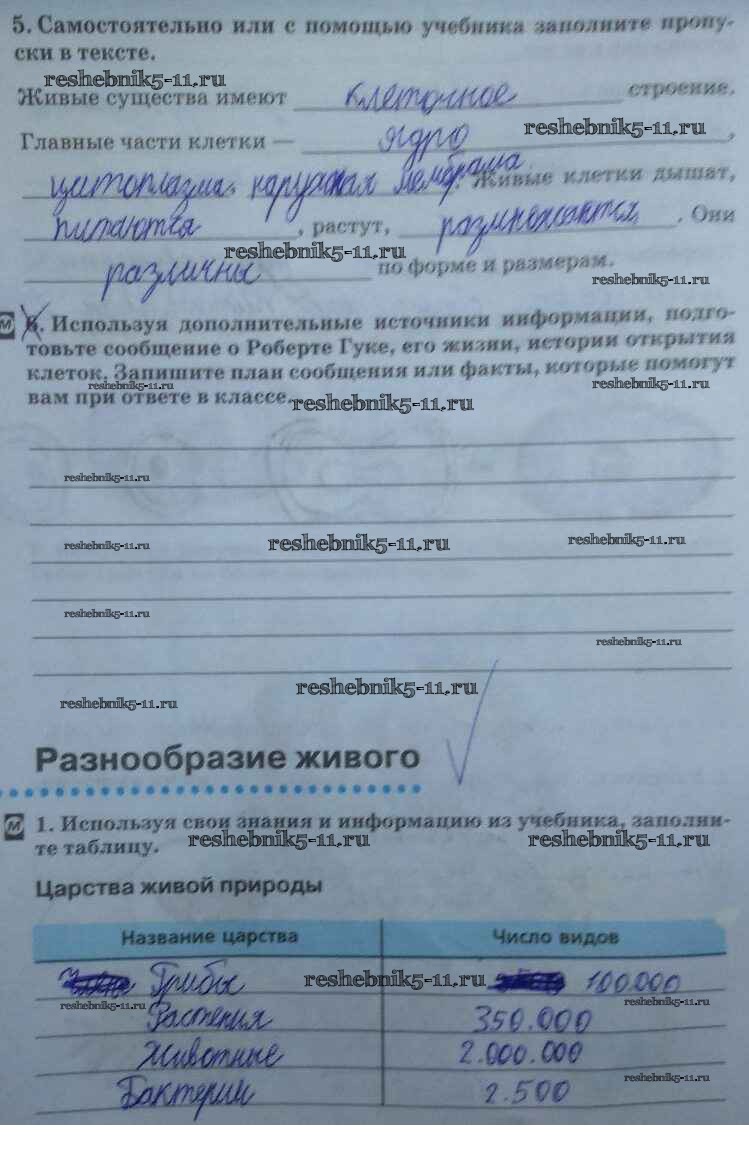 5. Самостоятельно или с помощью учебника заполните пропу-
ски в тексте.
reshebnik5-11.ru
Живые существа имеют клеточное строение.
Главные части клетки — ядро,
reshebnik5-11.ru
цитоплазма, наружная мембрана. Живые клетки дышат,
питаются, растут, размножаются. Они
reshebnik5-11.ru
различны по форме и размерам.
reshebnik5-11.ru
М 6. Используя дополнительные источники информации, подго-
товьте сообщение о Роберте Гуке, его жизни, истории открытия
клеток. Запишите план сообщения или факты, которые помогут
reshebnik5-11.ru reshebnik5-11.ru
вам при ответе в классе.
reshebnik5-11.ru
reshebnik5-11.ru
reshebnik5-11.ru reshebnik5-11.ru reshebnik5-11.ru
reshebnik5-11.ru
reshebnik5-11.ru
reshebnik5-11.ru
reshebnik5-11.ru
Разнообразие живого
М 1. Используя свои знания и информацию из учебника, заполни-
те таблицу.
reshebnik5-11.ru reshebnik5-11.ru
Царства живой природы
Название царства Число видов
Грибы 100.000
reshebnik5-11.ru
reshebnik5-11.ru reshebnik5-11.ru
Растения 350.000
Животные 2.000.000
reshebnik5-11.ru
Бактерии 2.500